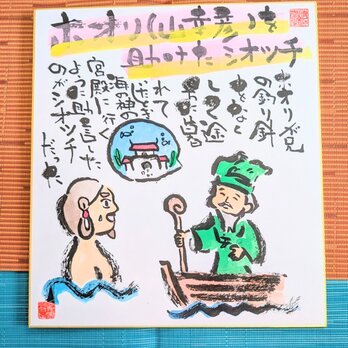 ホオリ(山幸彦)を
助けたシオツチ
ホオリが兄
の釣り針
をなく
して途
方に暮
れて
いると
海の神の
宮殿に行く
よう助言した
のがシオツチ
だった